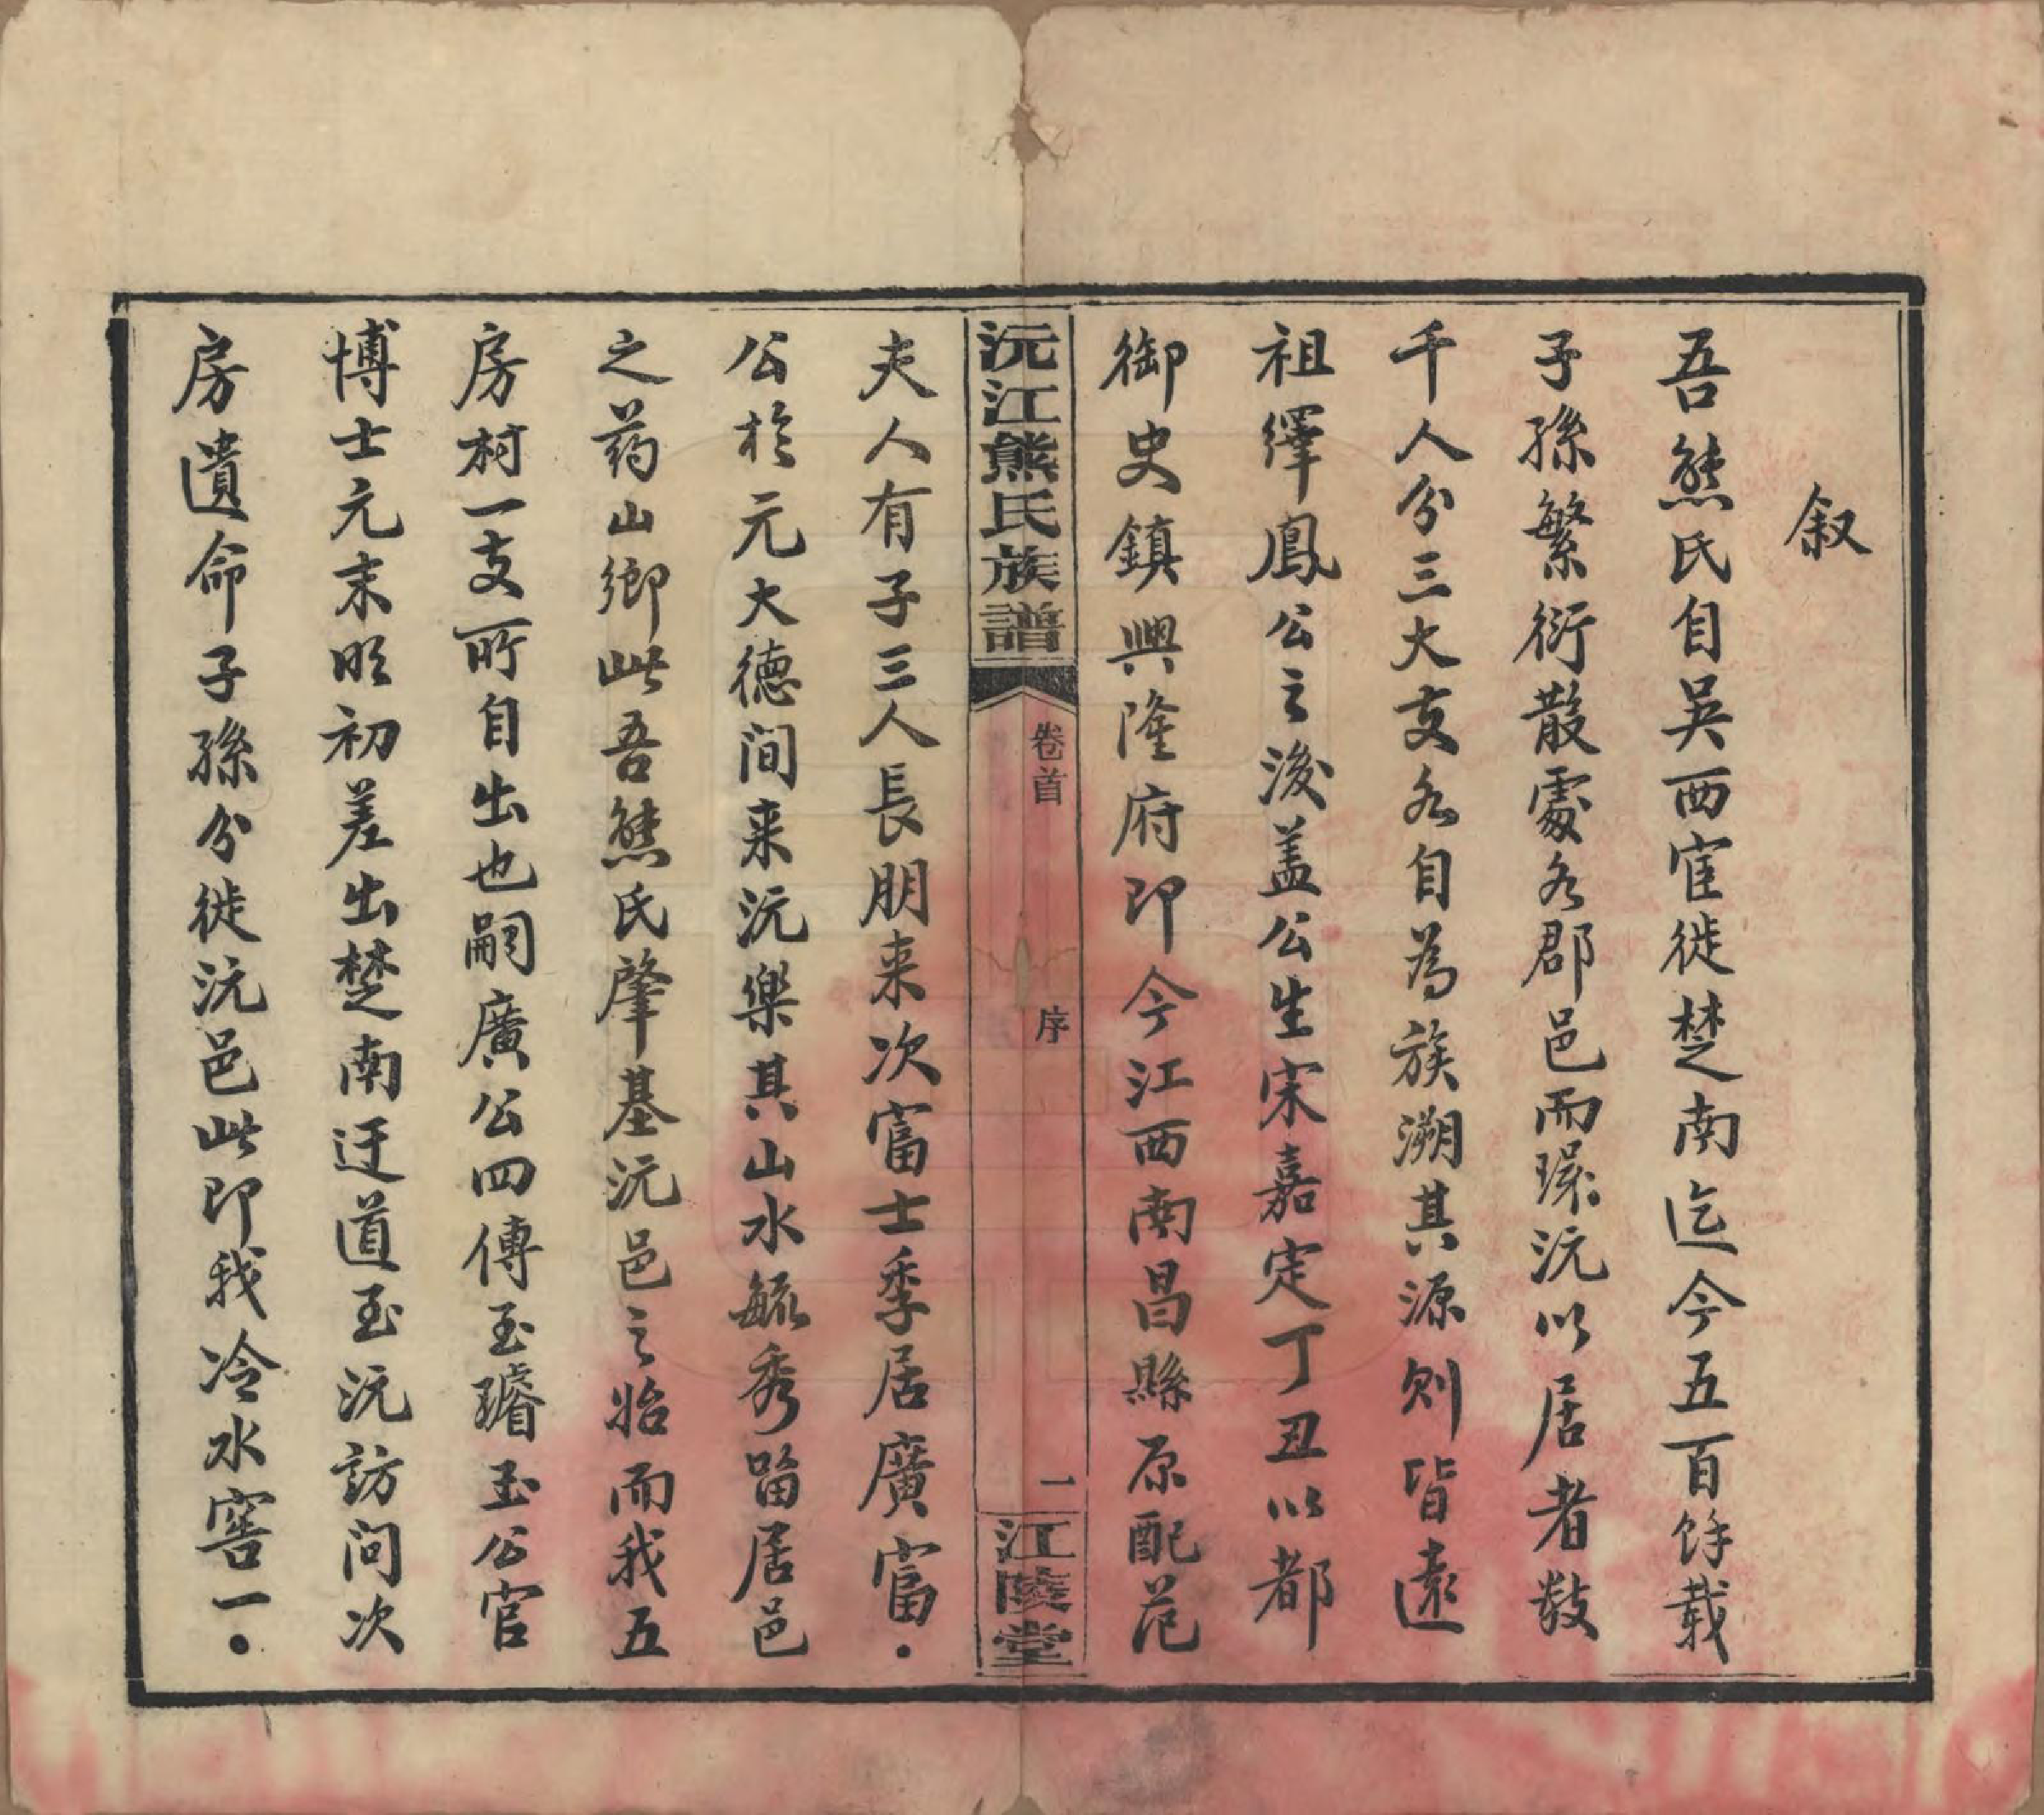 叙
吾熊氏自吳西宦徙楚南迄今五百餘載
子孫繁衍散處各郡邑而環沅以居者数
千人分三大支各自為族溯其源則皆遠
祖繹鳳公之後盖公生宋嘉定丁丑以都
御史鎮興隆府即今江西南昌縣原配范
沅江熊氏族譜
卷首
序
一
江陵堂
夫人有子三人長朋来次富士季居廣富
公於元大德间来沅樂其山水毓秀留居邑
之药山鄉此吾熊氏肇基沅邑之始而我五
房村一支所自出也嗣廣公四傳至璿玉公官
博士元末明初差出楚南迂道至沅訪问次
房遺命子孫分徙沅邑此即我冷水窖一